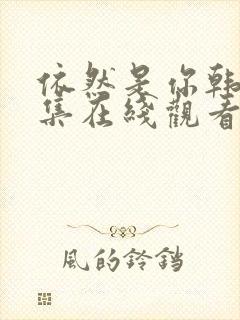 依然是你韩
集在线观看
風的鈴鐺